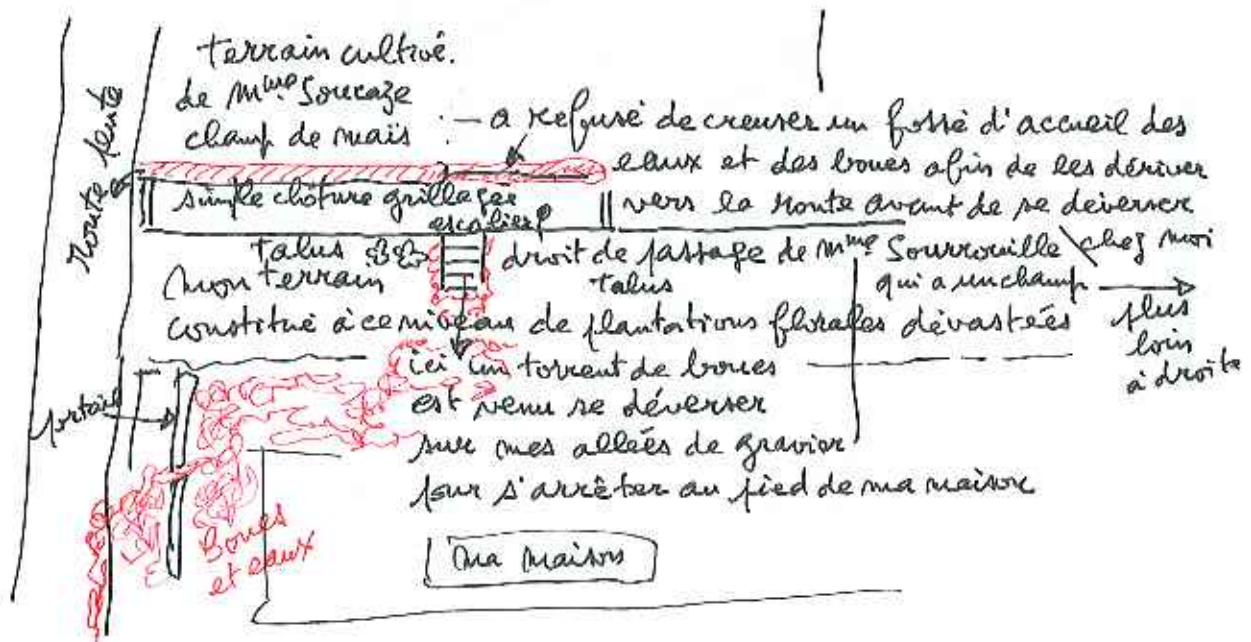 terrain cultivé.
de Mme Soucaze
champ de maïs
- a refusé de creuser un fossé d'accueil des
eaux et des boues afin de les dériver
vers la route avant de se déverser
chez moi
Route pente
simple clôture grillagée
escalier
talus
droit de passage de Mme Sourrouille
qui a un champ
plus
loin
à droite
mon terrain
talus
constitué à ce niveau de plantations florales dévastées
ici un torrent de boues
est venu se déverser
sur mes allées de gravier
pour s'arrêter au pied de ma maison
portail
Boues
et eaux
ma maison